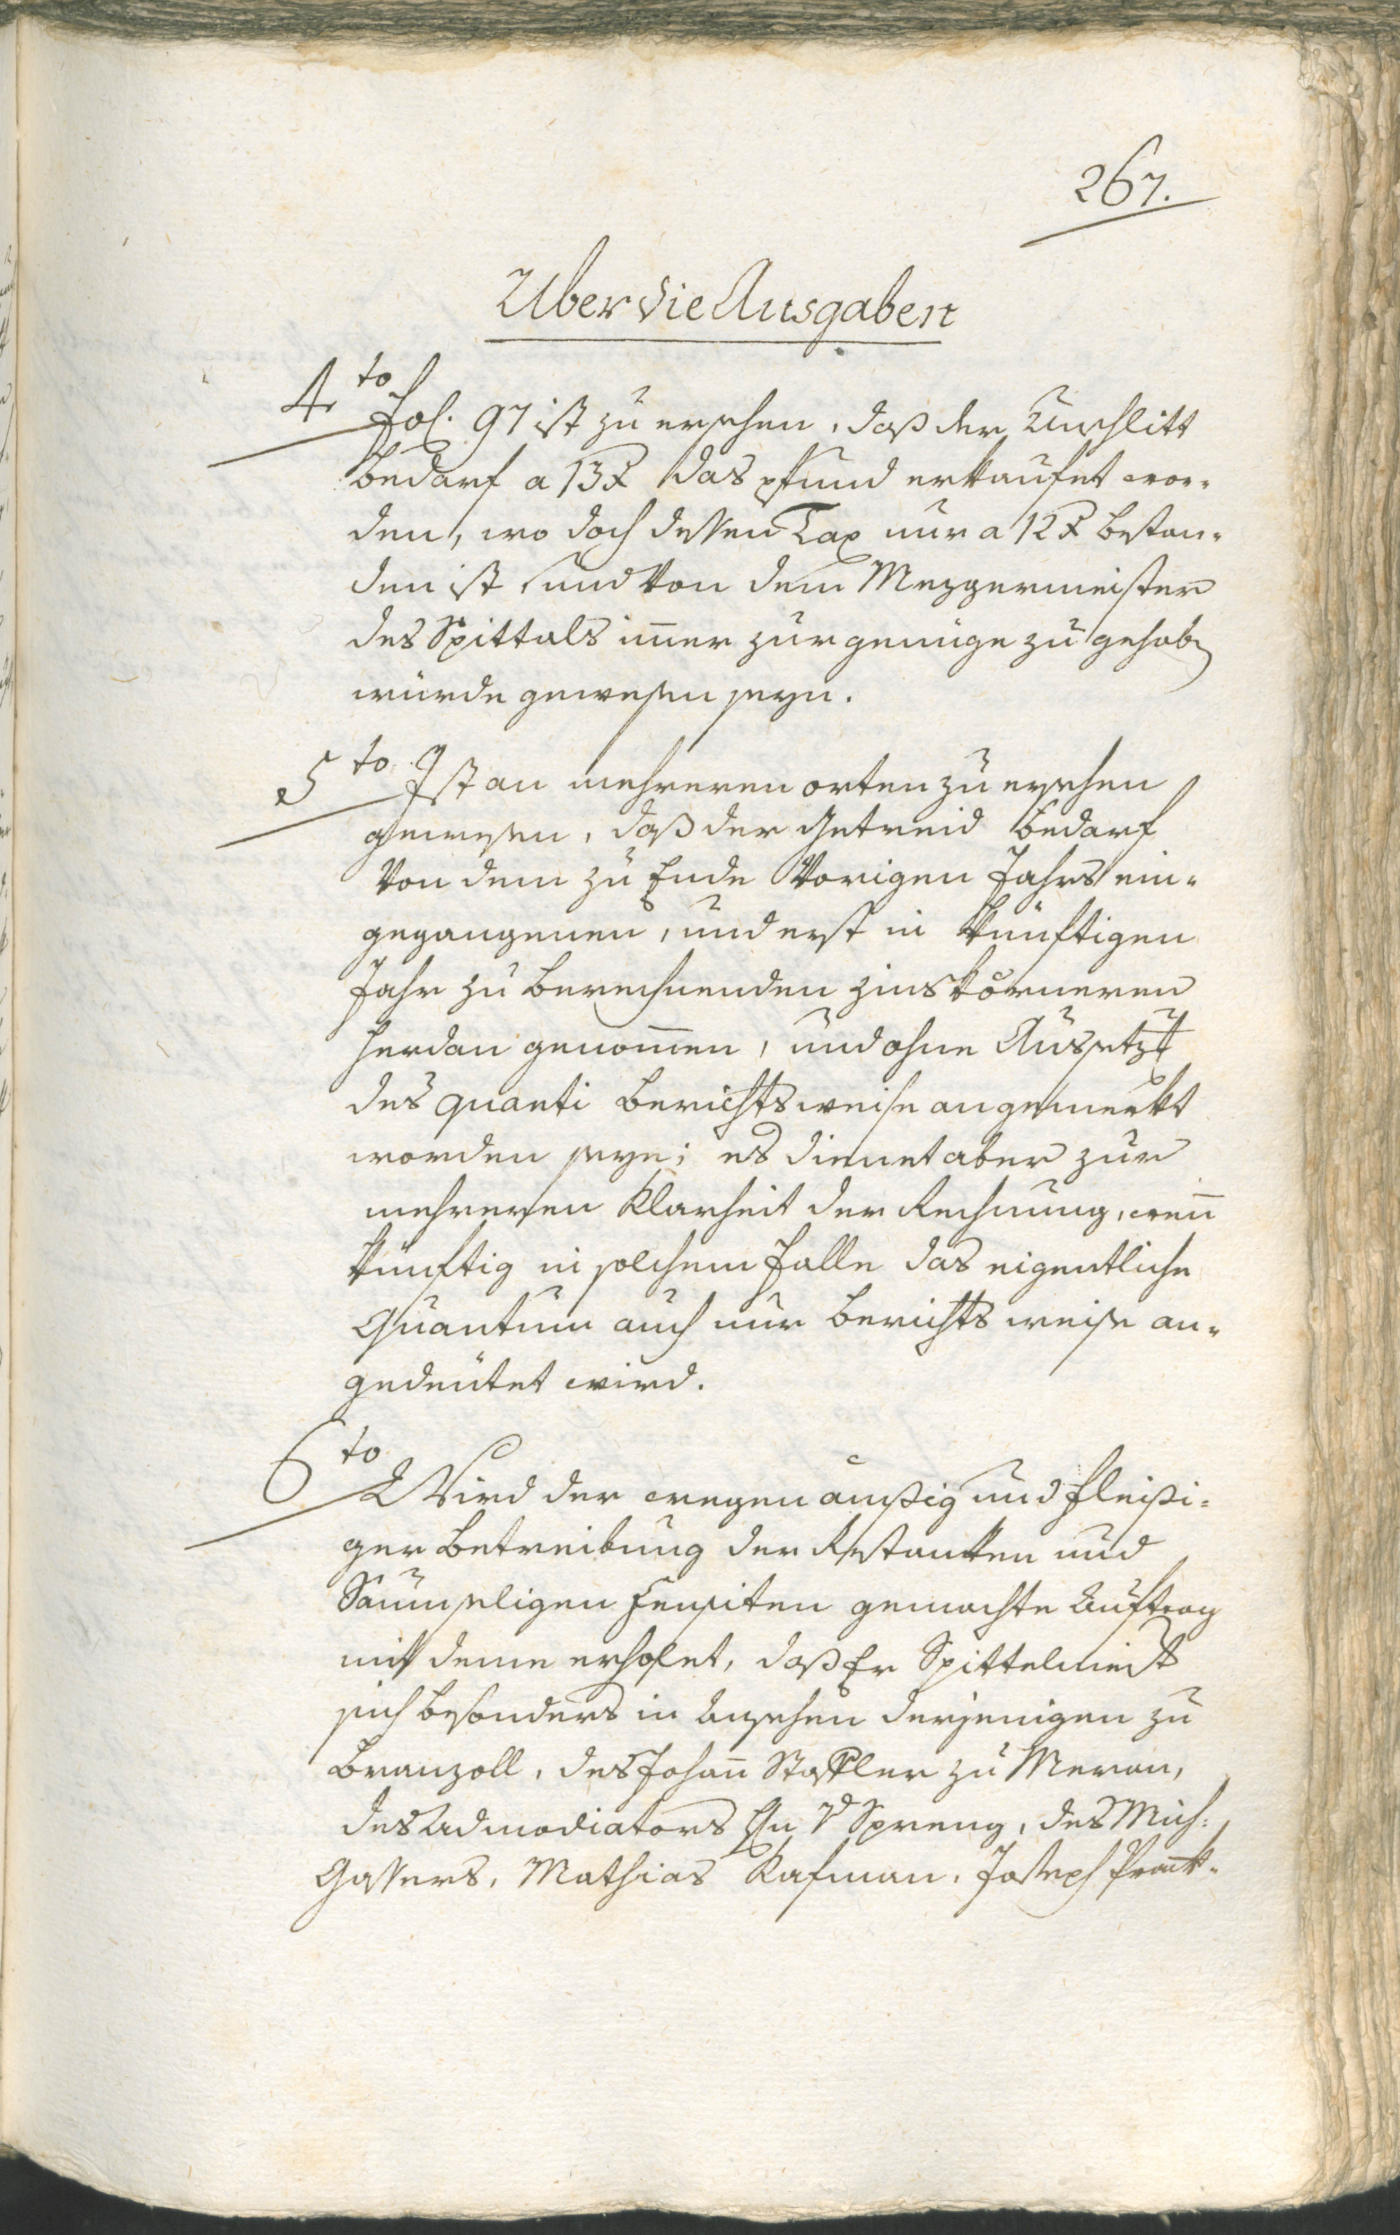 267.
Uber die Ausgaben
4to Fol. 97 ist zu ersehen, daß der Unschlitt
bedarf a 13 x das pfund erkaufet wor-
den, wo doch dessen Tax nur a 12 x bestan-
den ist, und von dem Mezgermeister
des Spittals im̅er zur genüge zu gehabn
würde gewesen seyn.
5to Ist an mehreren orten zu ersehen
gewesen, daß der Getreid bedarf
von dem zu Ende vorigen Jahrs ein-
gegangenen, und erst in künftigen
Jahr zu berechnenden zinskörneren
herdan genom̅en, und ohne Aussetzg
des quanti berichtsweise angemerkt
worden seye; es dienet aber zur
mehreren Klarheit der Rechnung, wen̅
künftig in solchem Falle das eigentliche
Quantum auch nur berichtsweise an-
gedeutet wird.
6to Wird der wegen amßig und fleißi-
ger Betreibung der Restanten und
Saumseligen Censiten gemachte Auftrag
mit deme erholet, daß Er Spittelmeistr
sich besonders in Ansehen derjenigen zu
Branzoll, des Johan̅ Stafler zu Meran,
des Admodiators Hn v Spreng, des Mich:
Gassers, Mathias Kafman, Joseph